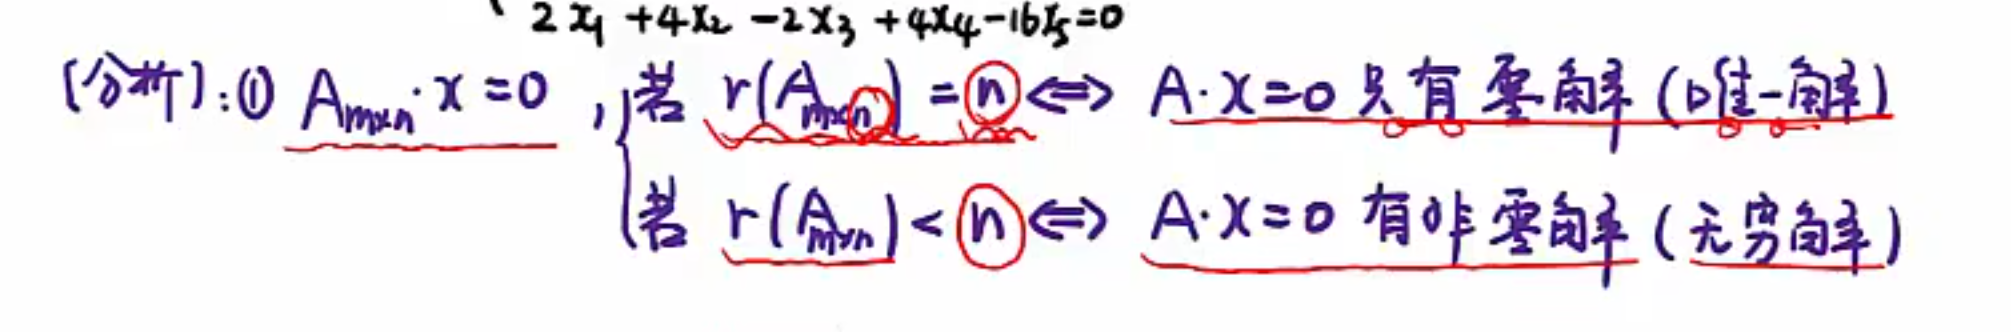 2x₁ +4x₂ -2x₃ +4x₄-16x₅=0
[分析]:① Aₘₓₙ·x=0 , 若 r(Aₘₓₙ) = n ⇔ A·x=0 只有零解 (唯一解)
若 r(Aₘₓₙ) < n ⇔ A·x=0 有非零解 (无穷解)